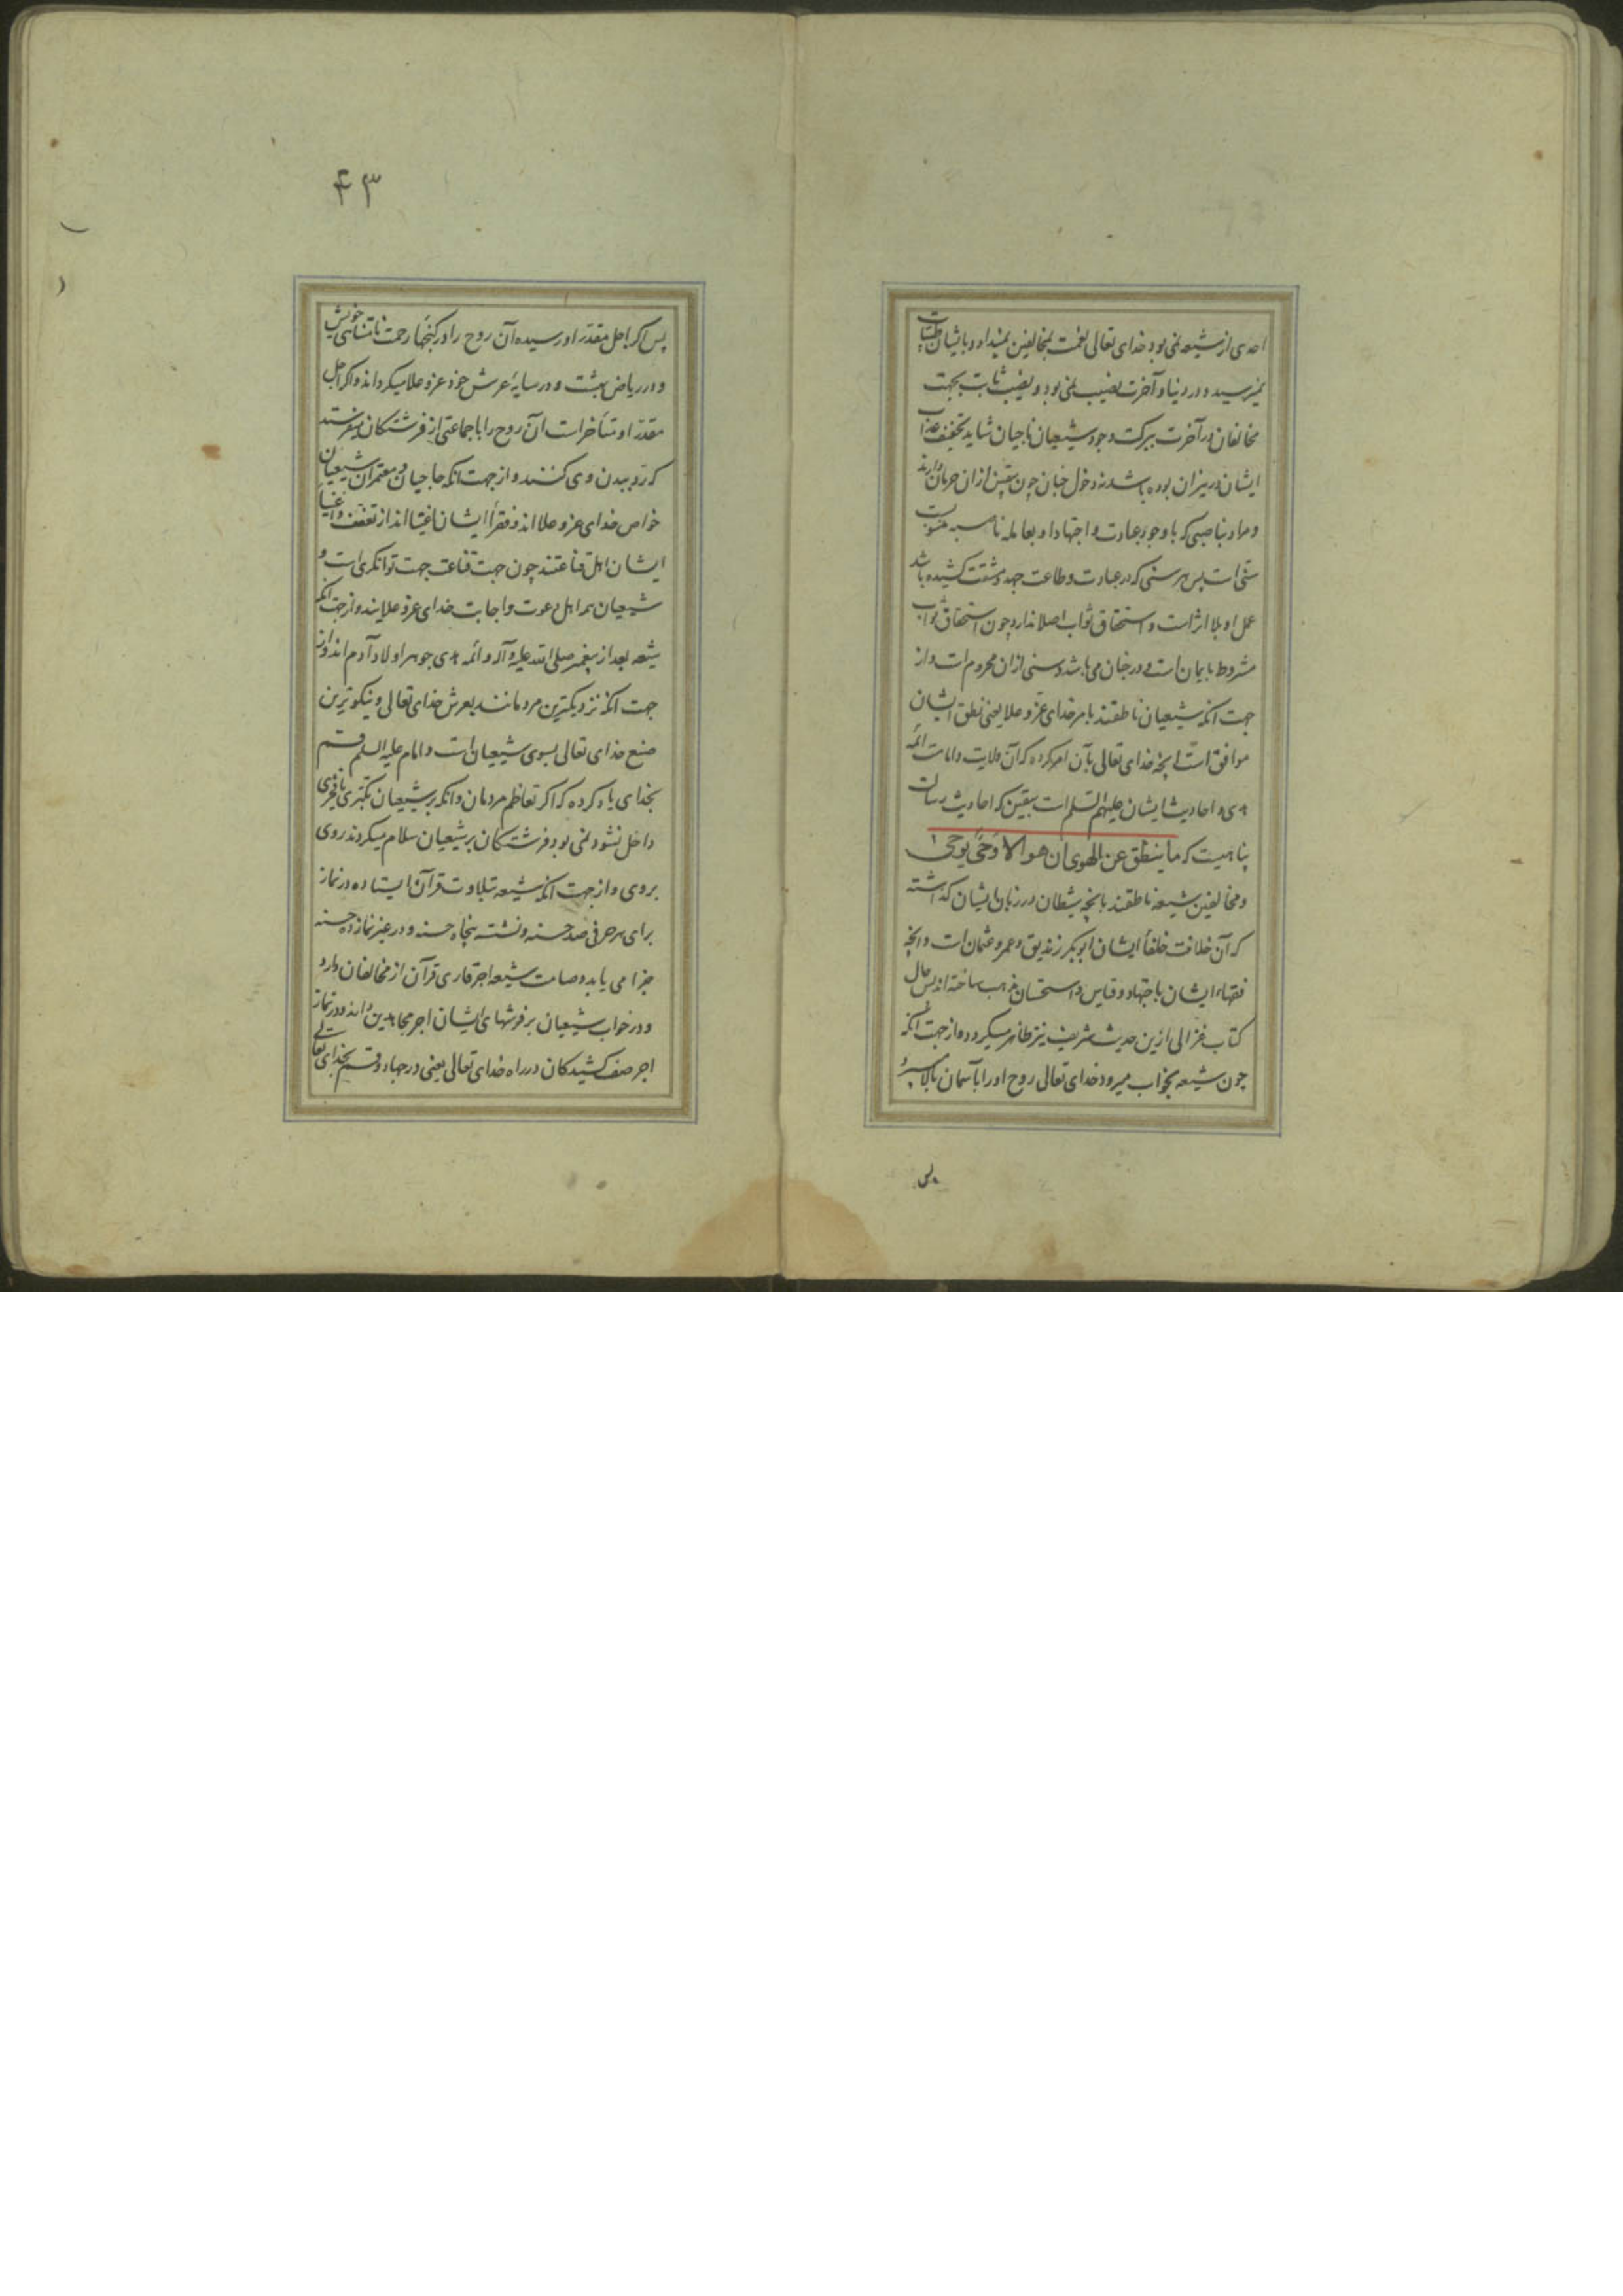 احدی از شیعه نمی بود خدای تعالی نعمت بمخالفین نمیداد و بایشان طیبات
نمیرسید و در دنیا و آخرت نصیب نمی بود و نصیب ثابت بجهت
مخالفان در آخرت ببرکت وجود شیعیان ناجیان شاید تخفیف عذاب
ایشان در نیران بوده باشد نه دخول جنان چون بیقین از آن حرمان دارند
و مراد بناصبی که با وجود عبادت و اجتهاد او بعامله ناصبه منسوبست
سنی است پس هر سنی که در عبادت و طاعت جهد و مشقت کشیده باشد
عمل او بلا اثر است و استحقاق ثواب اصلا ندارد چون استحقاق ثواب
مشروط بایمان است در جنان می باشد و سنی از آن محروم است و از
جهت آنکه شیعیان ناطقند بامر خدای عز و علا یعنی نطق ایشان
موافق است آنچه خدای تعالی بآن امر کرده که آن ولایت و امامت ائمه
هدی و احادیث ایشان علیهم السلم است بیقین که احادیث رسالت
پناهیست که ما ینطق عن الهوی ان هو الا وحی یوحی
و مخالفین شیعه ناطقند بآنچه شیطان در زبان ایشان گذاشته
که آن خلافت خلفاء ایشان ابوبکر زندیق و عمر و عثمان است و آنچه
فقهاء ایشان باجتهاد و قیاس و استحسان مذهب ساخته اند پس حال
کتاب غزالی ازین حدیث شریف نیز ظاهر میگردد و از جهت آنکه
چون شیعه بخواب میرود خدای تعالی روح او را بآسمان بالا
پس
۴۳
پس اگر اجل مقدر او رسیده آن روح را در گنجهاء رحمت نامتناهی خویش
و در ریاض بهشت و در سایهٔ عرش خود عز و علا میگرداند و اگر اجل
مقدر او متأخر است آن روح را با جماعتی از فرشتگان میفرستد
که رد ببدن وی کنند و از جهت آنکه حاجیان و معتمران شیعیان
خواص خدای عز و علا اند و فقراء ایشان اغنیا اند از تعفف و اغنیاء
ایشان اهل قناعتند چون جهت قناعت جهت توانگری است و
شیعیان همه اهل دعوت و اجابت خدای عز و علایند و از جهت آنکه
شیعه بعد از پیغمبر صلی الله علیه و آله و ائمه هدی جوهر اولاد آدم اند و از
جهت آنکه نزدیکترین مردمانند بعرش خدای تعالی و نیکوترین
صنع خدای تعالی بسوی شیعیان است و امام علیه السلم قسم
بخدای یاد کرده که اگر تعاظم مردمان و آنکه بر شیعیان تکبری یا فخری
داخل نشود نمی بود فرشتگان بر شیعیان سلام میکردند روی
بروی و از جهت آنکه شیعه بتلاوت قرآن ایستاده در نماز
برای هر حرفی صد حسنه و نشسته پنجاه حسنه و در غیر نماز ده حسنه
جزا می یابد و صامت شیعه اجر قاری قرآن از مخالفان دارد
و در خواب شیعیان بر فرشهای ایشان اجر مجاهدین دارند و در نماز
اجر صف کشیدگان در راه خدای تعالی یعنی در جهاد و قسم بخدای تعالی